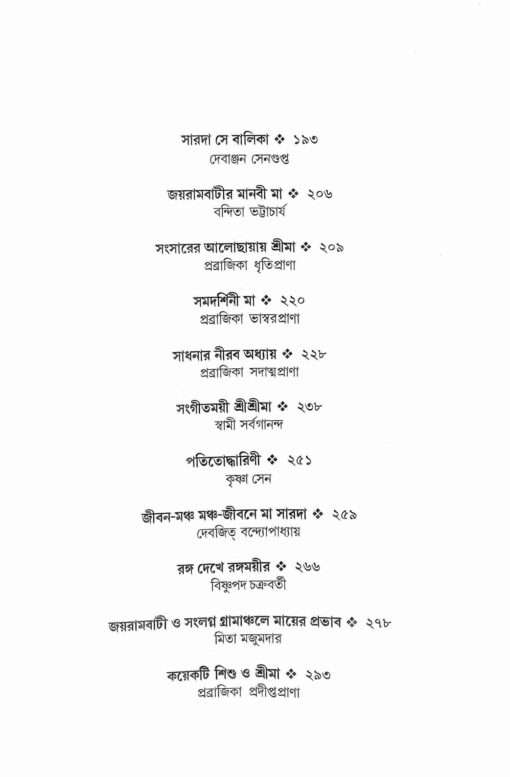 সারদা সে বালিকা ❖ ১৯৩
দেবাঞ্জন সেনগুপ্ত
জয়রামবাটীর মানবী মা ❖ ২০৬
বন্দিতা ভট্টাচার্য
সংসারের আলোছায়ায় শ্রীমা ❖ ২০৯
প্রব্রাজিকা ধৃতিপ্রাণা
সমদর্শিনী মা ❖ ২২০
প্রব্রাজিকা ভাস্বরপ্রাণা
সাধনার নীরব অধ্যায় ❖ ২২৮
প্রব্রাজিকা সদাত্মপ্রাণা
সংগীতময়ী শ্রীশ্রীমা ❖ ২৩৮
স্বামী সর্বগানন্দ
পতিতোদ্ধারিণী ❖ ২৫১
কৃষ্ণা সেন
জীবন-মঞ্চ মঞ্চ-জীবনে মা সারদা ❖ ২৫৯
দেবজিত্ বন্দ্যোপাধ্যায়
রঙ্গ দেখে রঙ্গময়ীর ❖ ২৬৬
বিষ্ণুপদ চক্রবর্তী
জয়রামবাটী ও সংলগ্ন গ্রামাঞ্চলে মায়ের প্রভাব ❖ ২৭৮
মিতা মজুমদার
কয়েকটি শিশু ও শ্রীমা ❖ ২৯৩
প্রব্রাজিকা প্রদীপ্তপ্রাণা